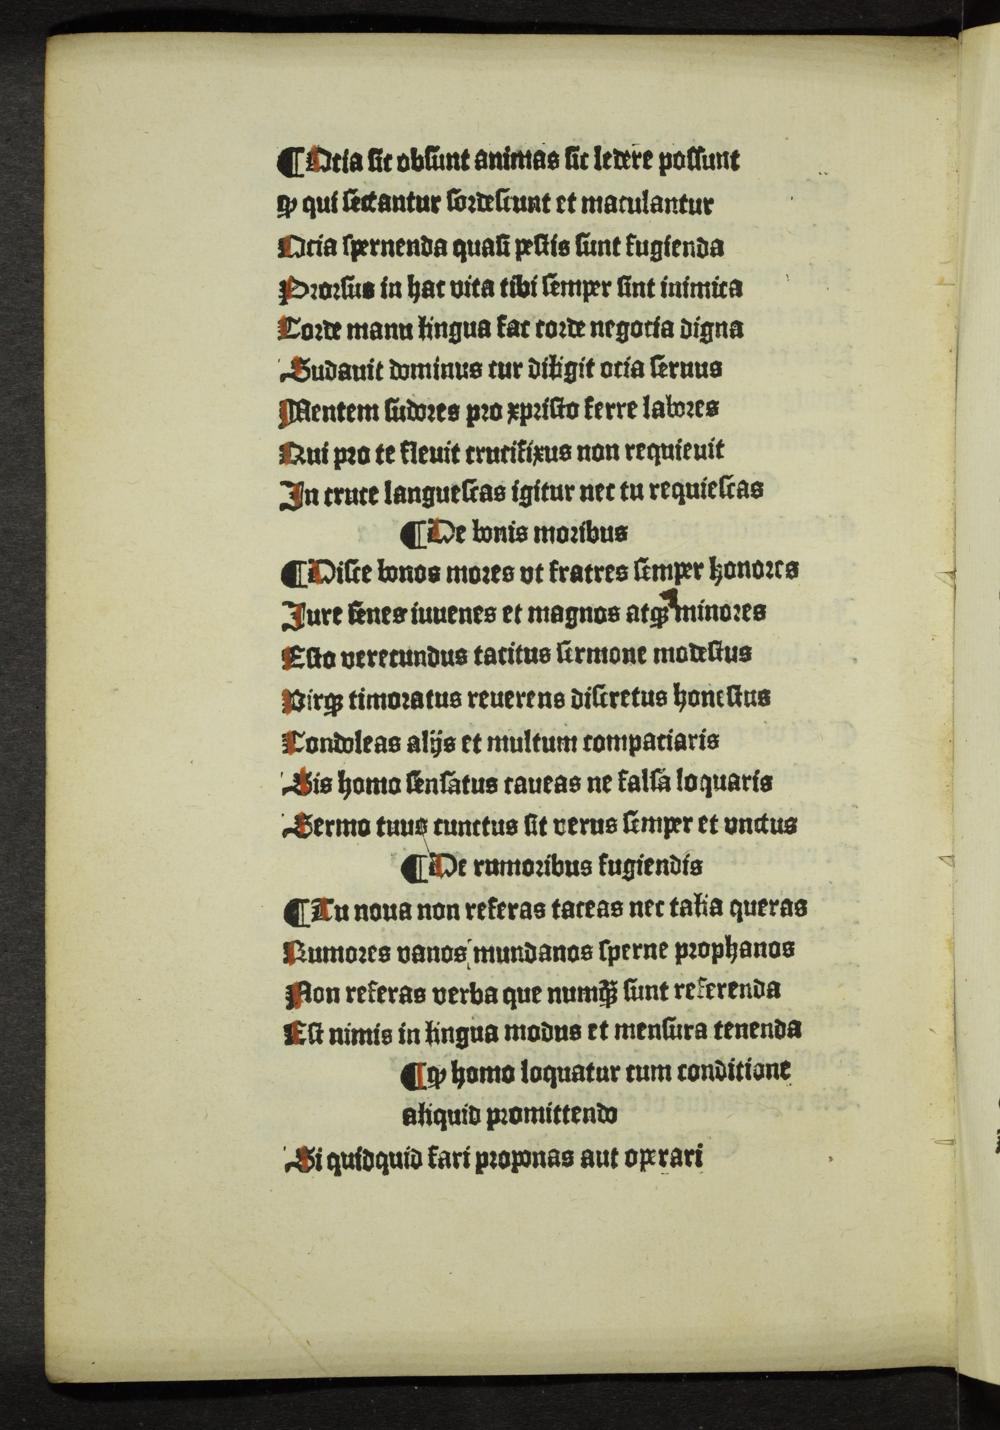 ¶Ocia sic obsunt animas sic ledere possunt
ꝙ qui sectantur sordescunt et maculantur
Ocia spernenda quasi pestis sunt fugienda
Prorsus in hac vita tibi semper sint inimica
Corde manu lingua fac corde negocia digna
Sudauit dominus cur diligit ocia seruus
Mentem sudores pro xpristo ferre labores
Qui pro te fleuit crucifixus non requieuit
In cruce languescas igitur nec tu requiescas
¶De bonis moribus
¶Disce bonos mores vt fratres semper honores
Iure senes iuuenes et magnos atqꝫ minores
Esto verecundus tacitus sermone modestus
Virqꝫ timoratus reuerens discretus honestus
Condoleas alijs et multum compaciaris
Sis homo sensatus caueas ne falsa loquaris
Sermo tuus cunctus sit verus semper et vnctus
¶De rumoribus fugiendis
¶Tu noua non referas taceas nec talia queras
Rumores vanos mundanos sperne prophanos
Non referas verba que numqꝫ̄ sunt referenda
Est nimis in lingua modus et mensura tenenda
¶ꝙ homo loquatur cum conditione
aliquid promittendo
Si quidquid fari proponas aut operari